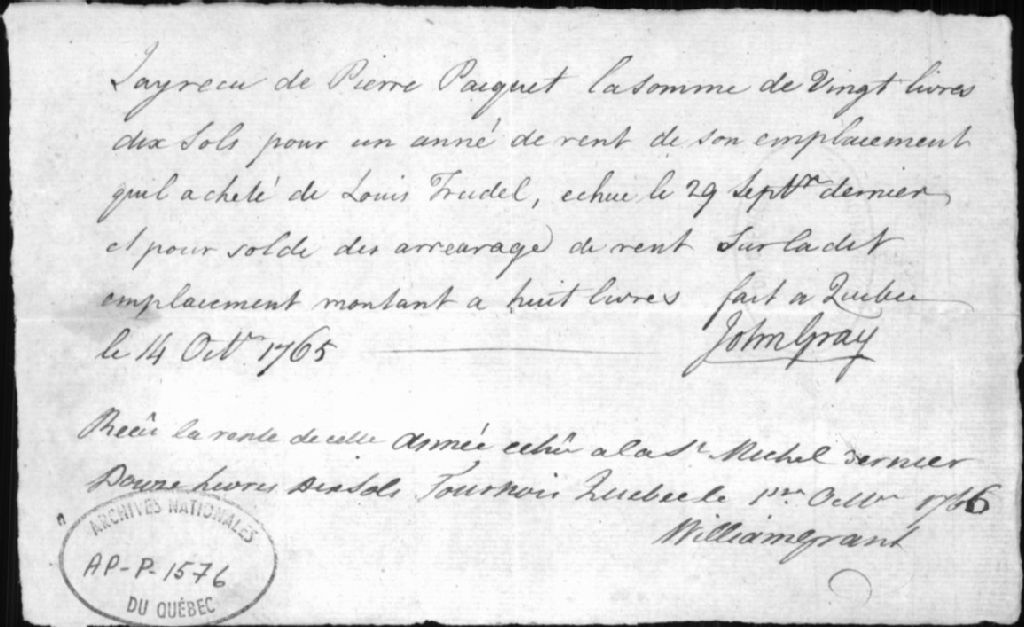 Jay recu de Pierre Paquet la somme de Vingt livres
dix Sols pour un anné de rent de son emplacement
quil acheté de Louis Trudel, echue le 29 Septbr dernier
et pour solde des arrearage de rent Sur la dit
emplacement montant a huit livres fait a Quebec
le 14 Octr 1765 John Gray
Recû la rente de cette année echû a la St Michel dernier
Douze Livres Dix Sols Tournois Quebec le 1er Octbr 1766
William Grant
ARCHIVES NATIONALES
AP-P-1576
DU QUÉBEC